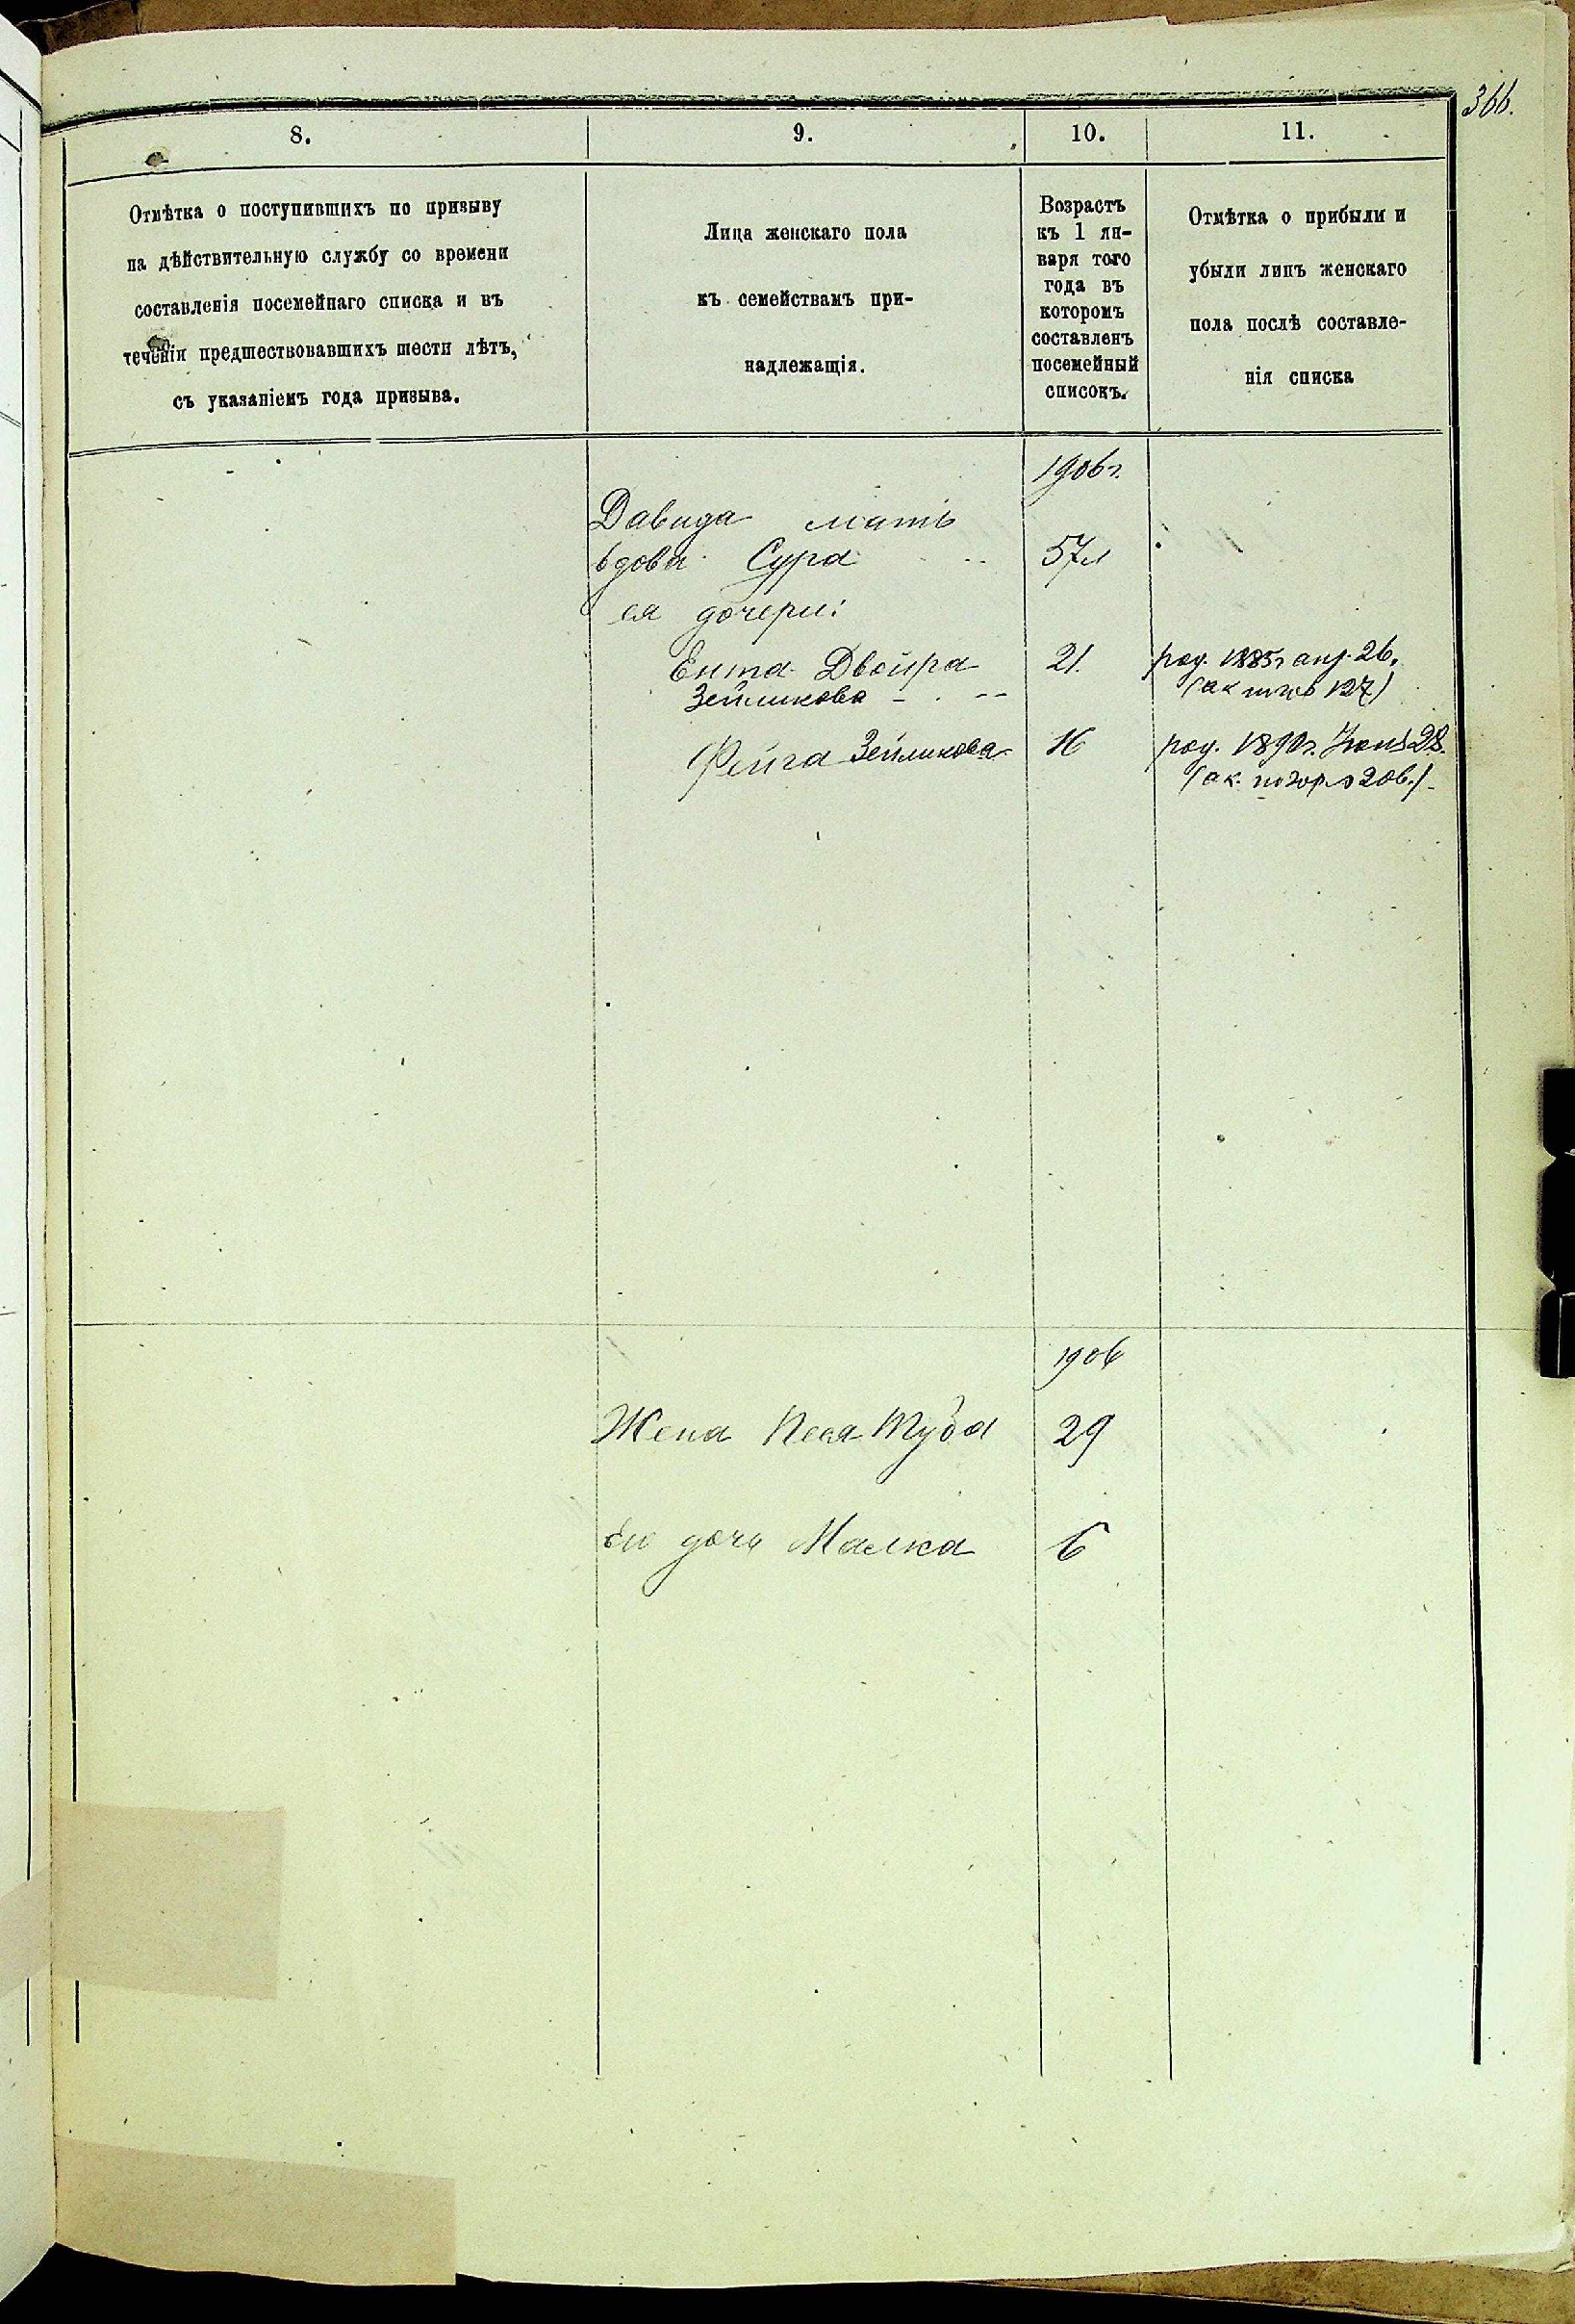 366.
8.
9.
10.
11.
Отмѣтка о поступившихъ по призыву
на дѣйствительную службу со времени
составленія посемейнаго списка и въ
теченіи предшествовавшихъ шести лѣтъ,
съ указаніемъ года призыва.
Лица женскаго пола
къ семействамъ при-
надлежащія.
Возрастъ
къ 1 ян-
варя того
года въ
которомъ
составленъ
посемейный
списокъ.
Отмѣтка о прибыли и
убыли лицъ женскаго
пола послѣ составле-
нія списка
1906 г.
Давида мать
вдова Сура 57 л
ея дочери:
Ента Двойра 21. род. 1885 г апр. 26.
Зеликова (ак 127)
Фейга Зеликова 16 род. 1890 г. 28.
(ак. 206.)
1906
Жена Песя Туба 29
дочь Малка 6